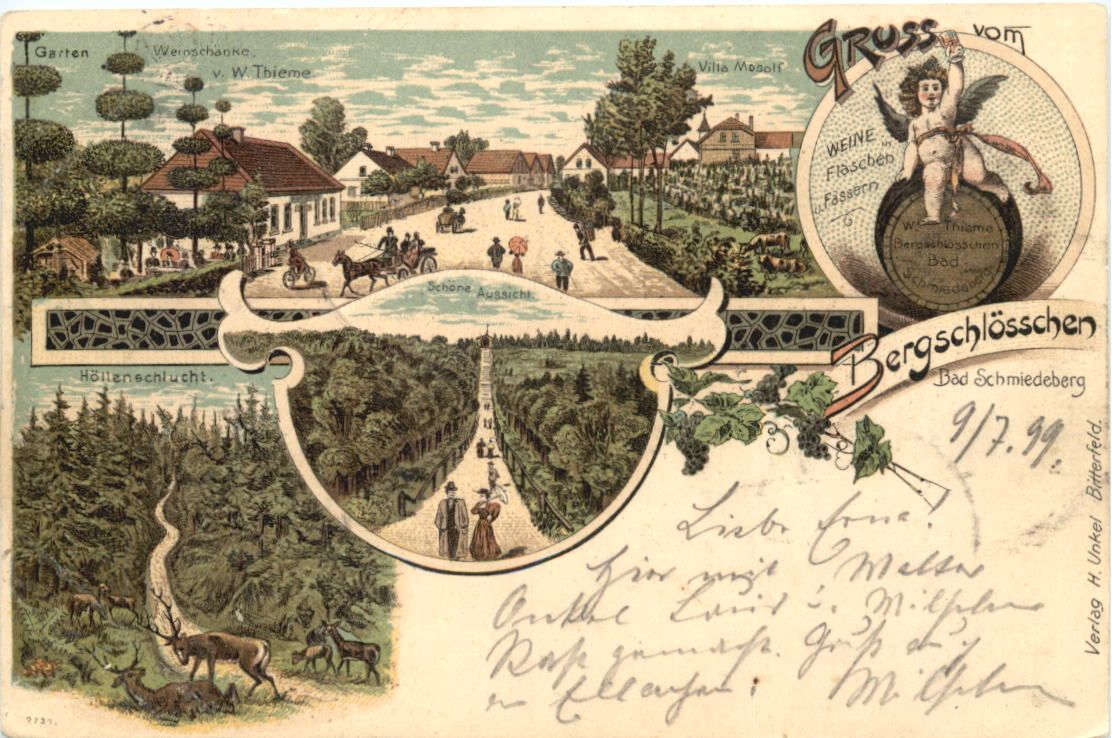 Garten
Weinschänke
v. W. Thieme
Villa Mosolf
GRUSS vom
WEINE in
Flaschen
u. Fässern
W. Thieme
Bergschlösschen
Bad
Schmiedeberg
Schöne Aussicht.
Bergschlösschen
Bad Schmiedeberg
Höllenschlucht.
9/7.99.
Liebe Erna!
Hier mit Walter
Onkel Louis u. Wilhelm
Rast gemacht. Gruß
Wilhelm
Verlag H. Unkel Bitterfeld.